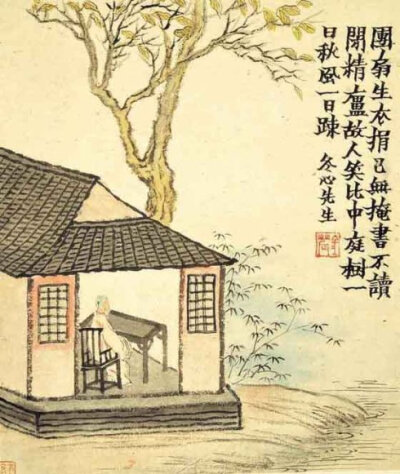 團扇生衣捐已無掩書不讀
閉精廬故人笑比中庭樹一
日秋風一日疎 冬心先生